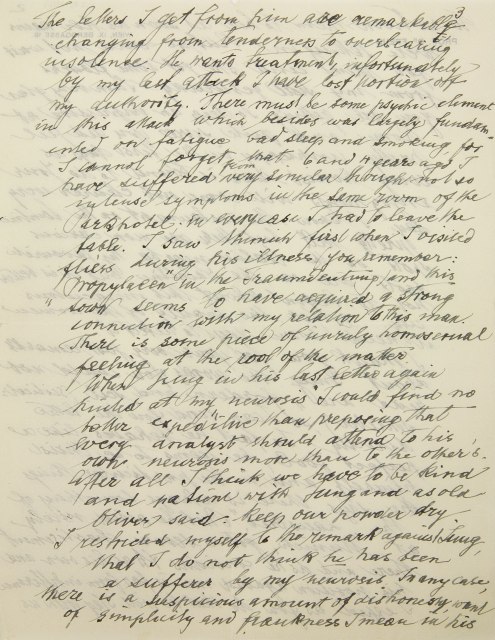 3
The letters I get from him are remarkable
changing from tenderness to overbearing
insolence. He wants treatment, infortunately
by my last attack I have lost portion off
my authority. There must be some psychic element
in this attack which besides was largely fundam-
ented on fatigue, bad sleep and smoking, for
I cannot forget that 6 and 4 years ago I
have suffered from very similar though not so
intense symptoms in the same room of the
Parkhotel; in every case I had to leave the
table. I saw Munich first when I visited
Fliess during his illness, you remember:
"Propylaeen" in the Traumdeutung and this
town seems to have acquired a strong
connection with my relation to this man.
There is some piece of unruly homosexual
feeling at the root of the matter.
When Jung in his last letter again
hinted at my "neurosis" I could find no
better expeditive than proposing that
every analyst should attend to his
own neurosis more than to the other's.
After all I think we have to be kind
and patient with Jung and as old
Oliver said: Keep our powder dry.
I restricted myself to the remark against Jung,
that I do not think he has been
a sufferer by my neurosis. In any case,
there is a suspicious amount of dishonesty, want
of simplicity and frankness I mean in his